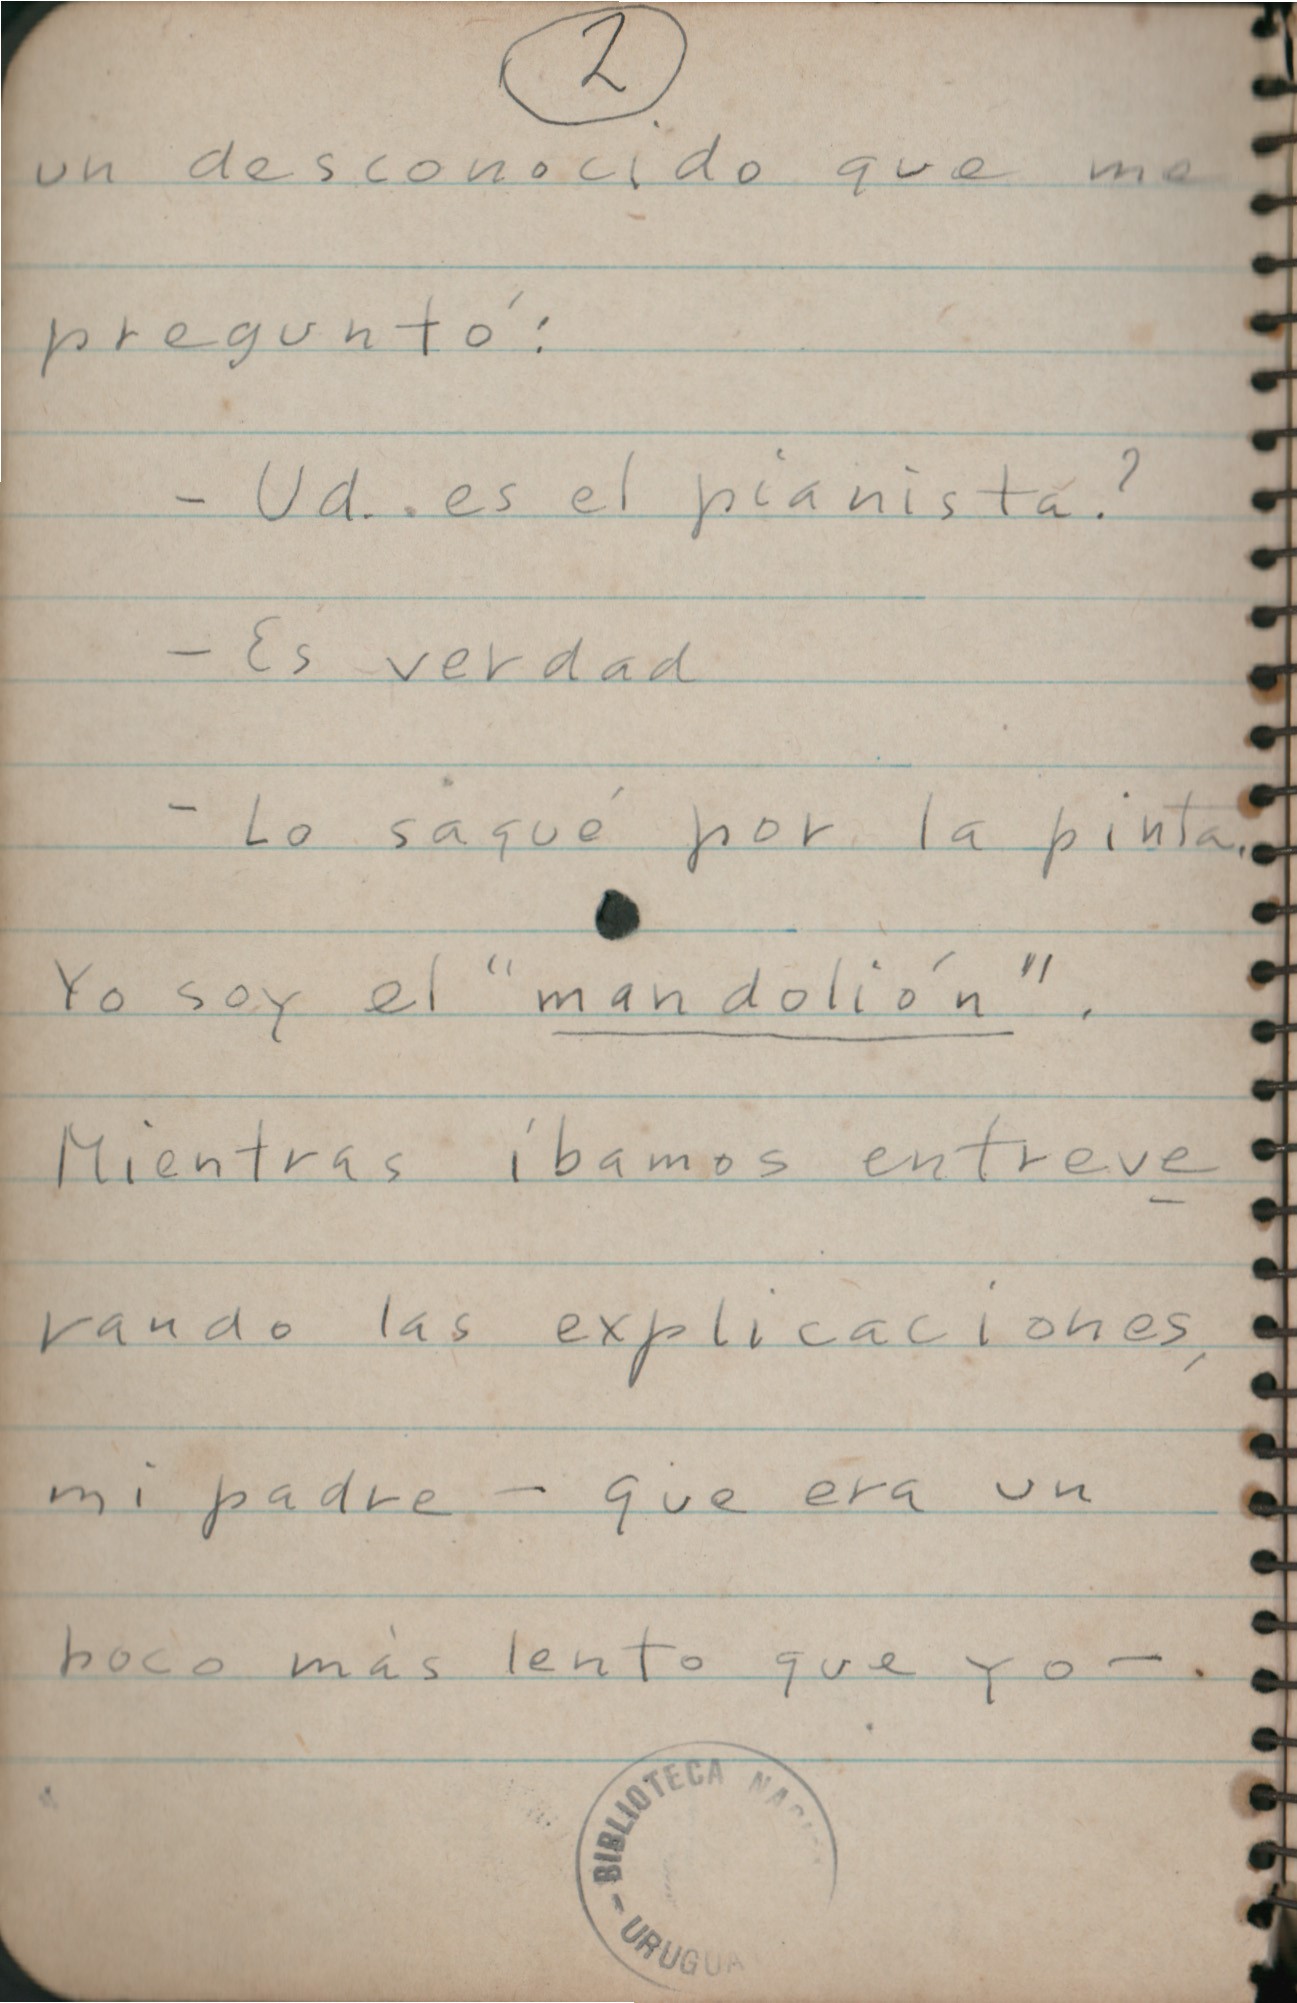 2
un desconocido que me
preguntó:
- Ud.. es el pianista?
- Es verdad
- Lo saqué por la pinta.
Yo soy el "mandolión".
Mientras íbamos entreve
rando las explicaciones,
mi padre - que era un
poco más lento que yo -.
BIBLIOTECA
- URUGUA